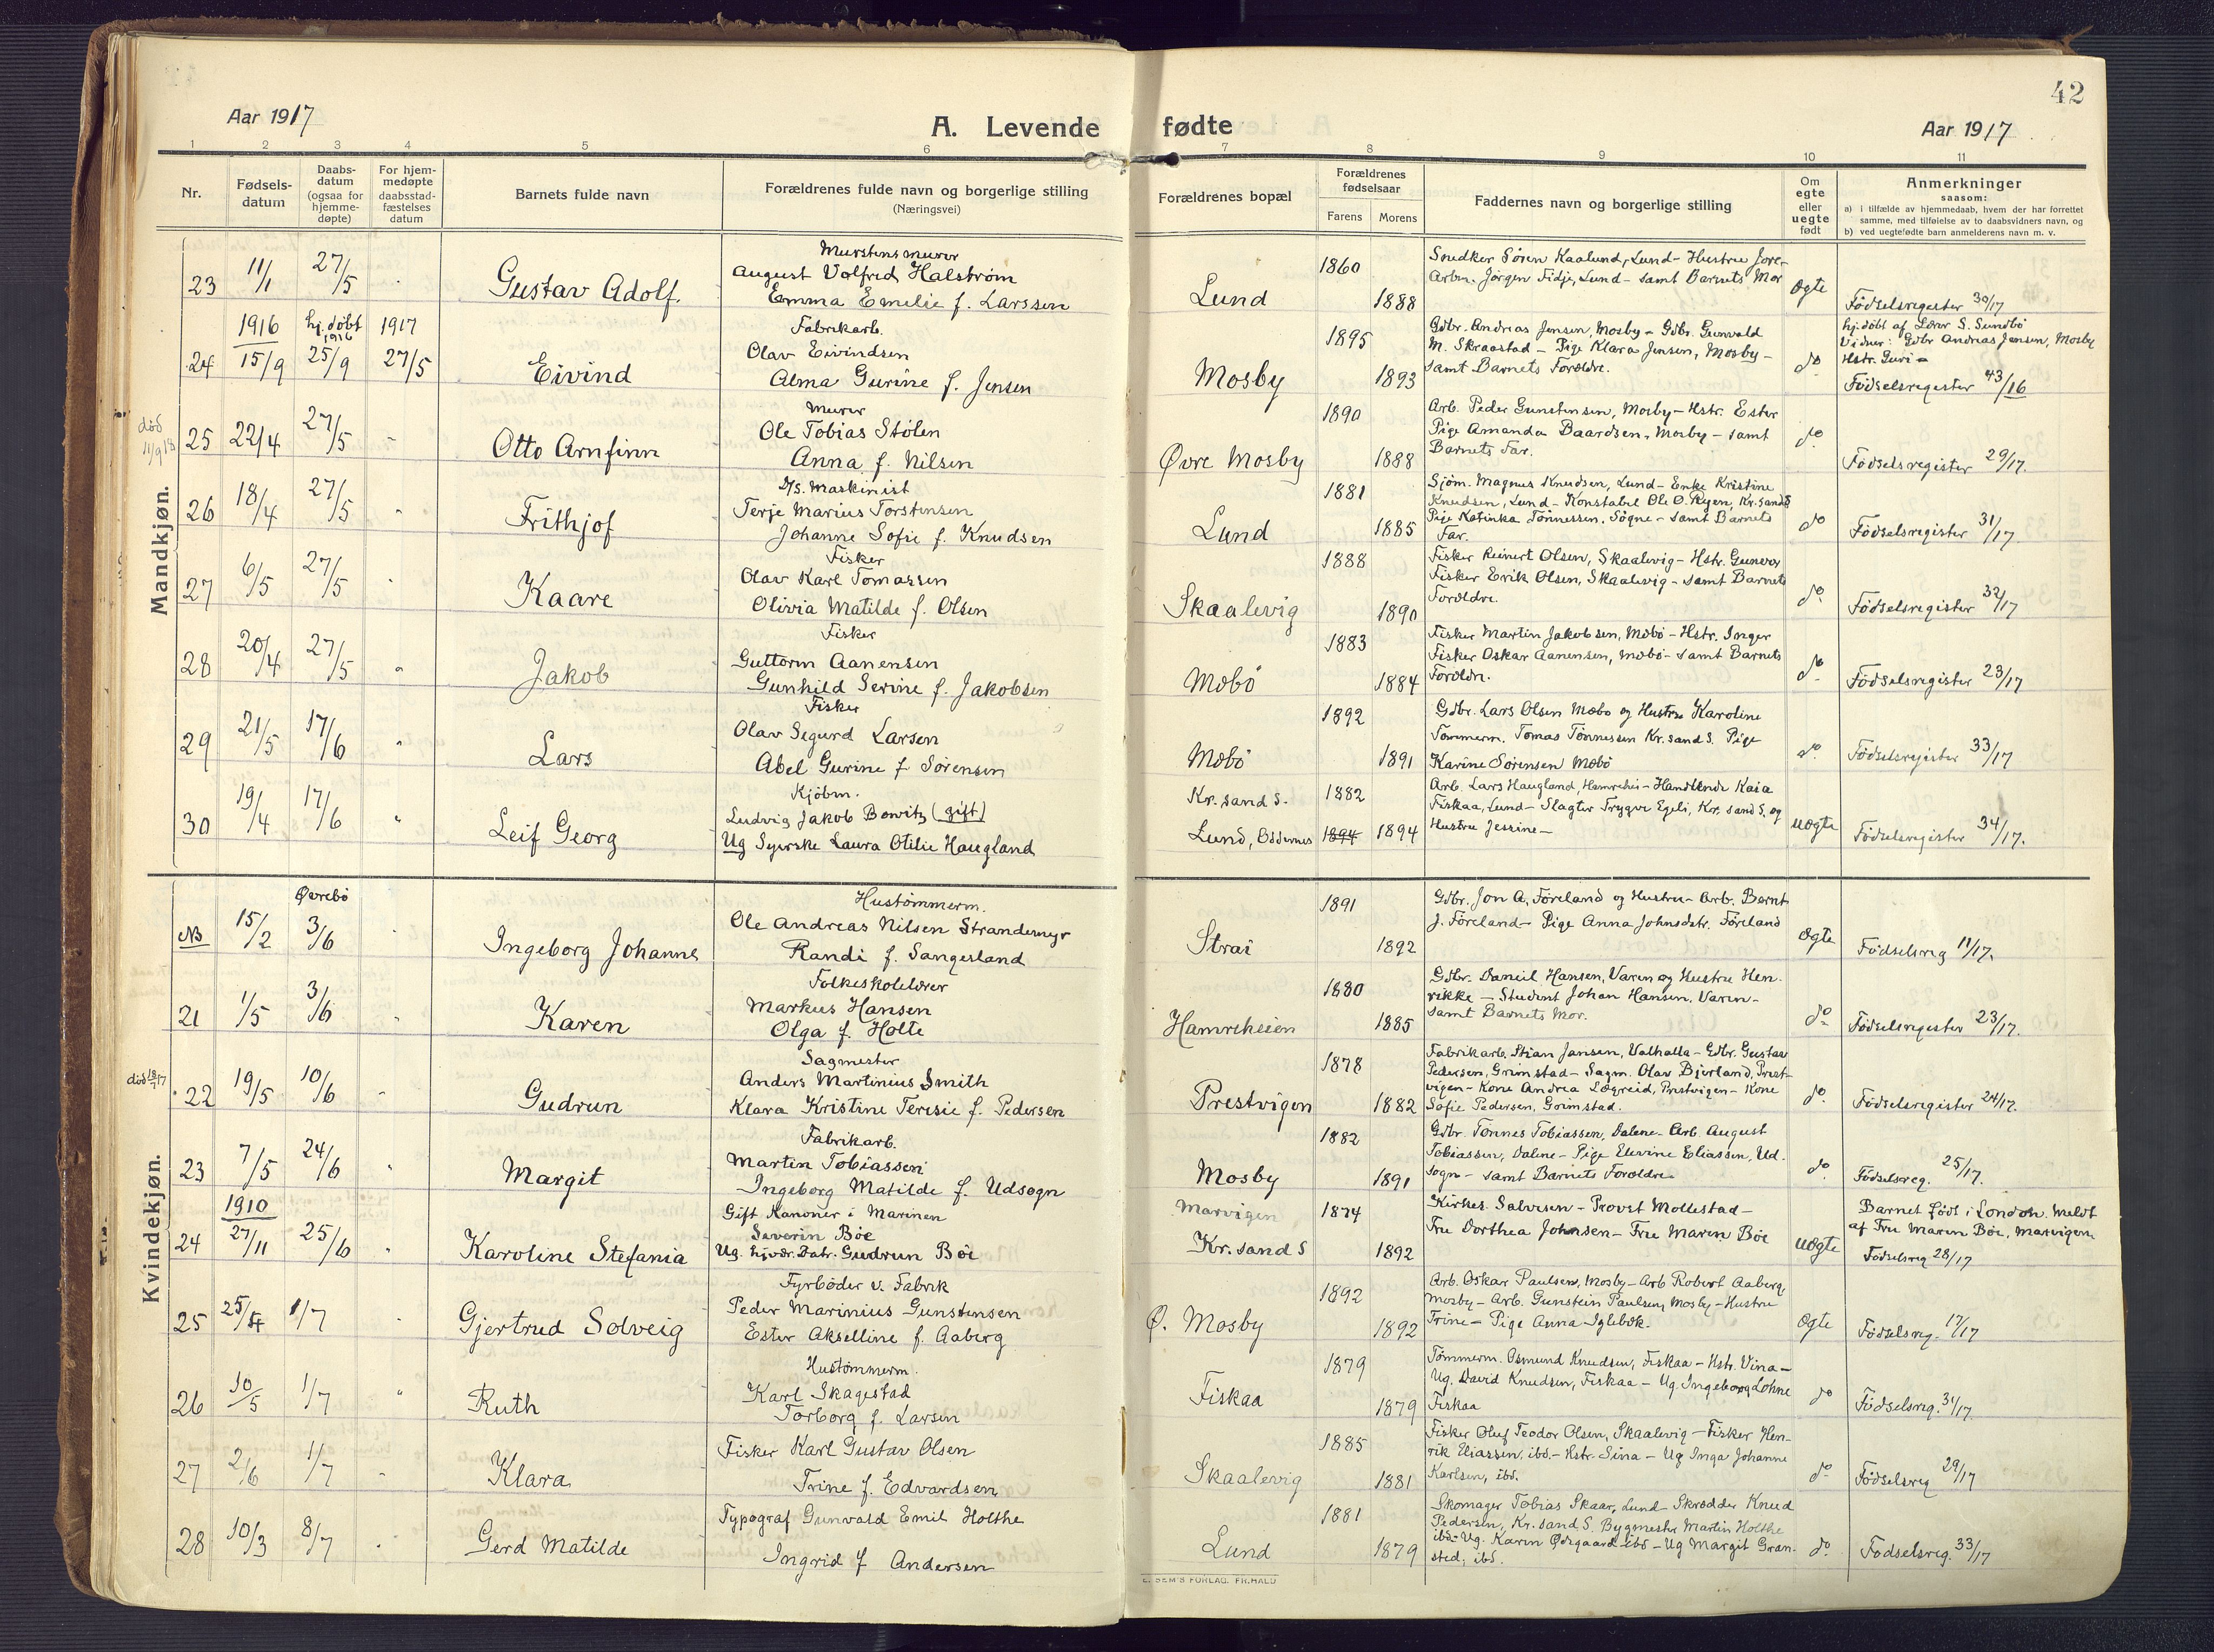 42
Aar 1917
A. Levende fødte
Aar 1917
1 2 3 4 5 6 7 8 9 10 11
Nr.
Fødsels-
datum
Daabs-
datum
(ogsaa for
hjemme-
døpte)
For hjem-
medøpte
daabsstad-
fæstelses
datum
Barnets fulde navn
Forældrenes fulde navn og borgerlige stilling
(Næringsvei)
Forældrenes bopæl
Forældrenes
fødselsaar
Farens Morens
Faddernes navn og borgerlige stilling
Om
egte
eller
uegte
født
Anmerkninger
saasom:
a) i tilfælde av hjemmedaab, hvem der har forrettet
samme, med tilføielse av to daabsvidners navn, og
b) ved uegtefødte barn anmelderens navn m. v.
Mandkjøn.
23 11/1 27/5 "
Gustav Adolf
Murstensmurer
August Volfred Halstrøm
Emma Emelie f. Larssen
Lund
1860
1888
Snedker Søren Kaalund, Lund - Hustru Jore-
Arbm. Jørgen Fidje, Lund - samt Barnets Mor
Øgte
Fødselsregister 30/17
1916 hj. døbt 1916 1917
24 15/9 25/9 27/5
Eivind
Fabrikarb.
Olav Eivindsen
Alma Gurine f. Jensen
Mosby
1895
1893
Gdbr. Andreas Jensen, Mosby - Gdbr. Gunvald
M. Skraastad - Pige Klara Jensen, Mosby -
samt Barnets Forældre.
do
hj. døbt af Lærer S. Sundbø
Vidner: Gdbr Andreas Jensen, Mosby
Hstr. Guri -
Fødselsregister 43/16
død
11/9 18
25 22/4 27/5 -
Otto Arnfinn
Murer
Ole Tobias Stølen
Anna f. Nilsen
Øvre Mosby
1890
1888
Arb. Peder Gunstensen, Mosby - Hstr. Ester
Pige Amanda Baardsen, Mosby - samt
Barnets Far.
do
Fødselsregister 29/17.
26 18/4 27/5 "
Frithjof
D/S. Maskinist
Terje Marius Torstensen
Johanne Sofie f. Knudsen
Lund
1881
1885
Sjøm. Magnus Knudsen, Lund - Enke Kristine
Knudsen, Lund - Konstabel Ole O. Ryen, Kr.sandS
Pige Katinka Tønnessen, Søgne - samt Barnets
Far.
do
Fødselsregister 31/17.
27 6/5 27/5 "
Kaare
Fisker
Olav Karl Tomassen
Olivia Matilde f. Olsen
Skaalevig
1888
1890
Fisker Reinert Olsen, Skaalevig - Hstr. Gunvor
Fisker Erik Olsen, Skaalevig - samt Barnets
Forældre.
do
Fødselsregister 32/17
28 20/4 27/5 "
Jakob
Fisker
Guttorm Aanensen
Gunhild Serine f. Jakobsen
Mæbø
1883
1884
Fisker Martin Jakobsen, Mæbø - Hstr. Inger
Fisker Oskar Aanensen, Mæbø - samt Barnets
Forældr.
do
Fødselsregister 23/17
29 21/5 17/6 "
Lars
Fisker
Olav Segurd Larsen
Abel Gurine f Sørensen
Mæbø
1892
1891
Gdbr. Lars Olsen Mæbø og Hustru Karoline
Tømmerm. Tomas Tønnessen Kr.sand S. Pige
Karine Sørensen Mæbø
do
Fødselsregister 33/17
30 19/4 17/6 "
Leif Georg
Kjøbm.
Ludvig Jakob Bowitz (gift)
Ug Syerske Laura Otilie Haugland
Kr.sand S.
Lund, Oddernes
1882
1894 1894
Arb. Lars Haugland, Hamreheien - Handlende Kaia
Fiskaa, Lund - Slagter Trygve Egeli, Kr.sand S. og
Hustru Jessine -
uøgte
Fødselsregister 34/17.
Kvindekjøn.
Øvrebø
NB 15/2 3/6 "
Ingeborg Johanne
Hustømmerm.
Ole Andreas Nilsen Strandemyr
Randi f. Sangesland
Strai
1891
1892
Gdbr. Jon A. Føreland og Hustru - Arb. Bernt
J. Føreland - Pige Anna Johnsdatr. Føreland
Øgte
Fødselsreg 11/17.
21 1/5 3/6 "
Karen
Folkeskolelærer
Markus Hansen
Olga f. Holte
Hamreheien
1880
1885
Gdbr. Daneil Hansen, Varen og Hustru Hen-
rikke - Student Johan Hansen, Varen -
samt Barnets Mor.
do
Fødselsregister 23/17.
død 18/7 17
22 19/5 10/6 -
Gudrun
Sagmester
Anders Martinius Smith
Klara Kristine Teresie f. Pedersen
Prestvigen
1878
1882
Fabrikarb. Stian Jansen, Valhalla - Gdbr. Gustav
Pedersen, Grimstad - Sagm. Olav Bjerland, Prest-
vigen - Kone Andrea Lægreid, Prestvigen - Kone
Sofie Pedersen, Grimstad.
do.
Fødselsregister 24/17.
23 7/5 24/6 "
Margit
Fabrikarb.
Martin Tobiassen
Ingeborg Matilde f. Udsogn
Mosby
1882
1891
Gdbr. Tønnes Tobiassen, Dalene - Arb. August
Tobiassen, Dalene - Pige Elevine Eliassen, Ud-
sogn - samt Barnets Forældre
do
Fødselsreg. 25/17.
1910
24 27/11 25/6 "
Karoline Stefania
Gift Kanoner i Marinen
Severin Bøe
Ug. hjvdr. Datr. Gudrun Bøe
Marvigen
Kr.sand S
1874
1892
Kirkes. Salvesen - Provst Mollestad -
Fru Dorthea Johnsen - Fru Maren Bøe
uøgte
Barnet født i London. Meldt
af Fru Maren Bøe, Marvigen
Fødselsreg 28/17
25 25/4 1/7 "
Gjertrud Solveig
Fyrbøder v. Fabrik
Peder Marinius Gunstensen
Ester Akselline f. Aaberg
Ø. Mosby
1892
1892
Arb. Oskar Paulsen, Mosby - Arb Robert Aaberg
Mosby - Arb. Gunstein Paulsen, Mosby - Hustru
Trine - Pige Anna Iglebæk.
Øgte
Fødselsreg. 17/17
26 10/5 1/7 "
Ruth
Hustømmerm.
Karl Skagestad
Torborg f. Larsen
Fiskaa
1879
1879
Tømmerm. Osmund Knudsen, Fiskaa - Hstr. Vina -
Ug. David Knudsen, Fiskaa - Ug. Ingeborg Lohne
Fiskaa
do
Fødselsreg. 31/17
27 2/6 1/7 -
Klara
Fisker Karl Gustav Olsen
Trine f. Edvardsen
Skaalevig
1885
1881
Fisker Oluf Teodor Olsen, Skaalevig - Fisker Hen-
rik Eliassen, ibd. - Hstr. Sina - Ug Inga Johanne
Karlsen, ibd.
do
Fødselsreg 29/17
28 10/3 8/7 "
Gerd Matilde
Typograf Gunvald Emil Holthe
Ingrid f Andersen
Lund
1881
1879
Skomager Tobias Skaar, Lund - Skrædder Knud
Pedersen, Kr.sand S. Bygmester Martin Holthe
ibd - Ug. Karen Ødegaard ibd - Ug Margit Gran-
sted, ibd.
do.
Fødselsreg. 33/17
E. SEM'S FORLAG. FR.HALD